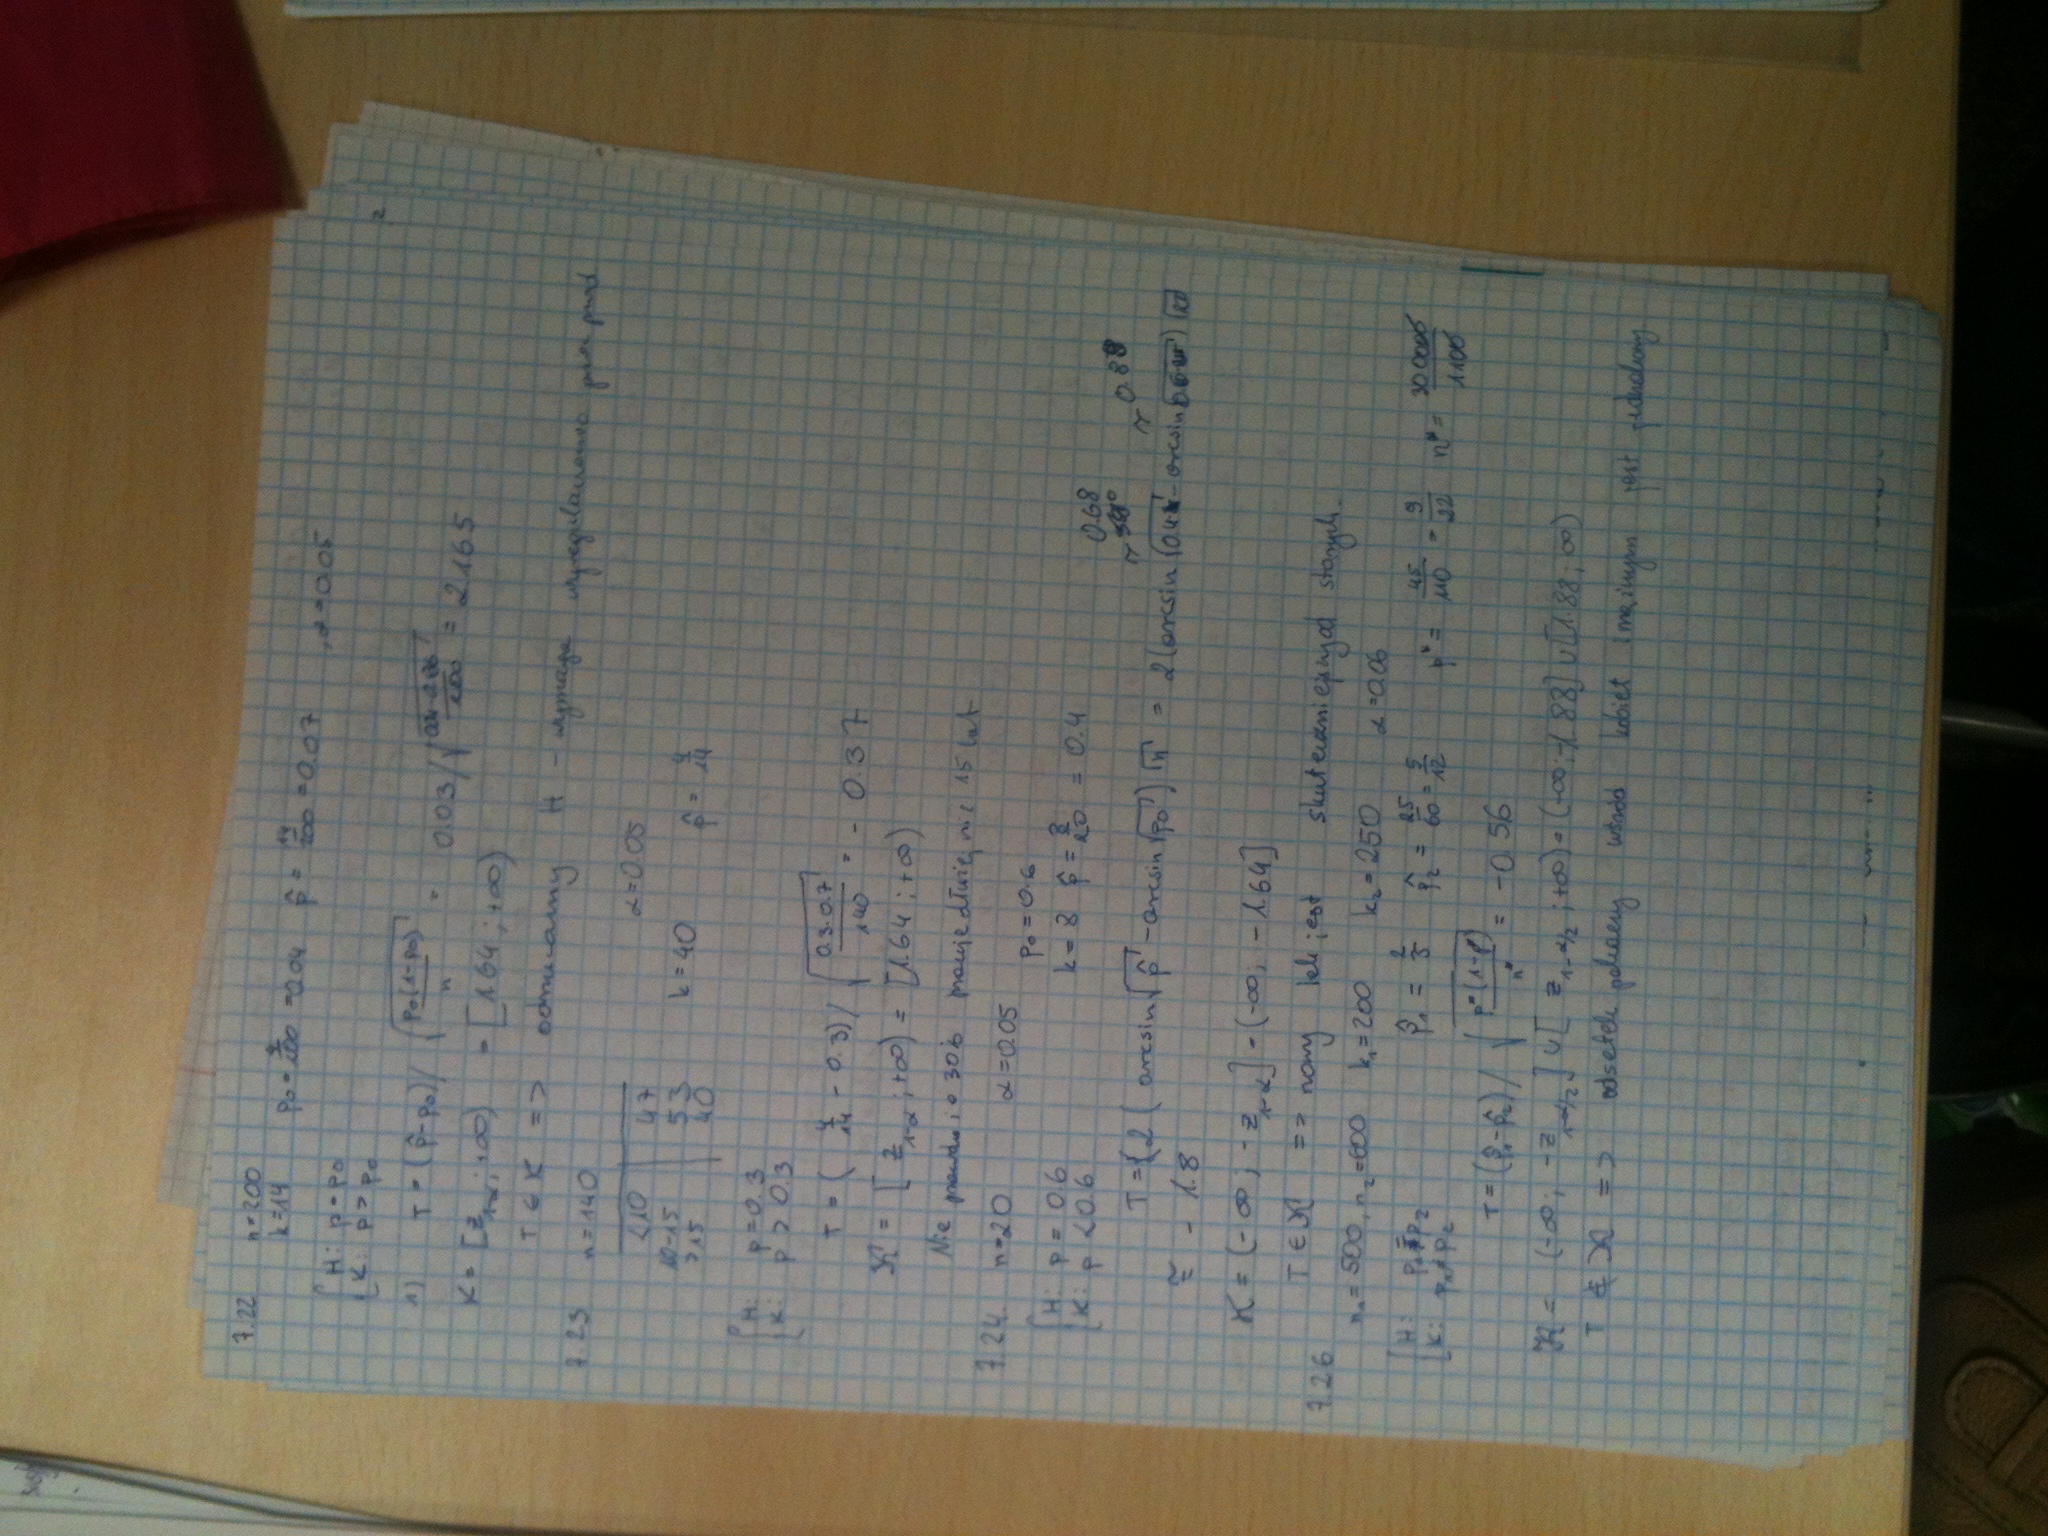 7.22 n=200
k=14 p₀ = 4/100 = 0.04 p̂ = 14/200 = 0.07 , α=0.05
H: p=p₀
K: p>p₀
1) T = (p̂-p₀)/√(p₀(1-p₀)/n) = 0.03/√(0.04·0.96/200) = 2.165
K = [z₁₋α ; +∞) = [1.64 ; +∞)
T ∈ K => odrzucamy H - wymaga wyregulowania
7.23 n=140
<10 47 α=0.05
10-15 53 k=40 p̂ = 4/14
>15 40
H: p=0.3
K: p>0.3
T = (4/14 - 0.3)/√(0.3·0.7/140) = -0.37
K = [z₁₋α ; +∞) = [1.64 ; +∞)
Nie prawda, 30% pracuje dłużej niż 15 lat
7.24. n=20 α=0.05 p₀=0.6
H: p = 0.6 k=8 p̂ = 8/20 = 0.4
K: p < 0.6
0.68 0.88
T = 2(arcsin√p̂ - arcsin√p₀)√n = 2(arcsin√0.4 - arcsin√0.6)√20
≅ -1.8
K = (-∞; -z₁₋α] = (-∞; -1.64]
T ∈ K => nowy lek jest skuteczniejszy od starych.
7.26
n₁=500, n₂=600 k₁=200 k₂=250 α=0.06
H: p₁=p₂ p̂₁ = 2/5 p̂₂ = 25/60 = 5/12 p* = 45/110 = 9/22 n* = 300000/1100
K: p₁≠p₂
T = (p̂₁-p̂₂)/√(p*(1-p*)/n*) = -0.56
K = (-∞; -z₁₋α/₂] ∪ [z₁₋α/₂ ; +∞) = (-∞; -1.88] ∪ [1.88; ∞)
T ∉ K => odsetek palaczy wśród kobiet i mężczyzn jest jednakowy.